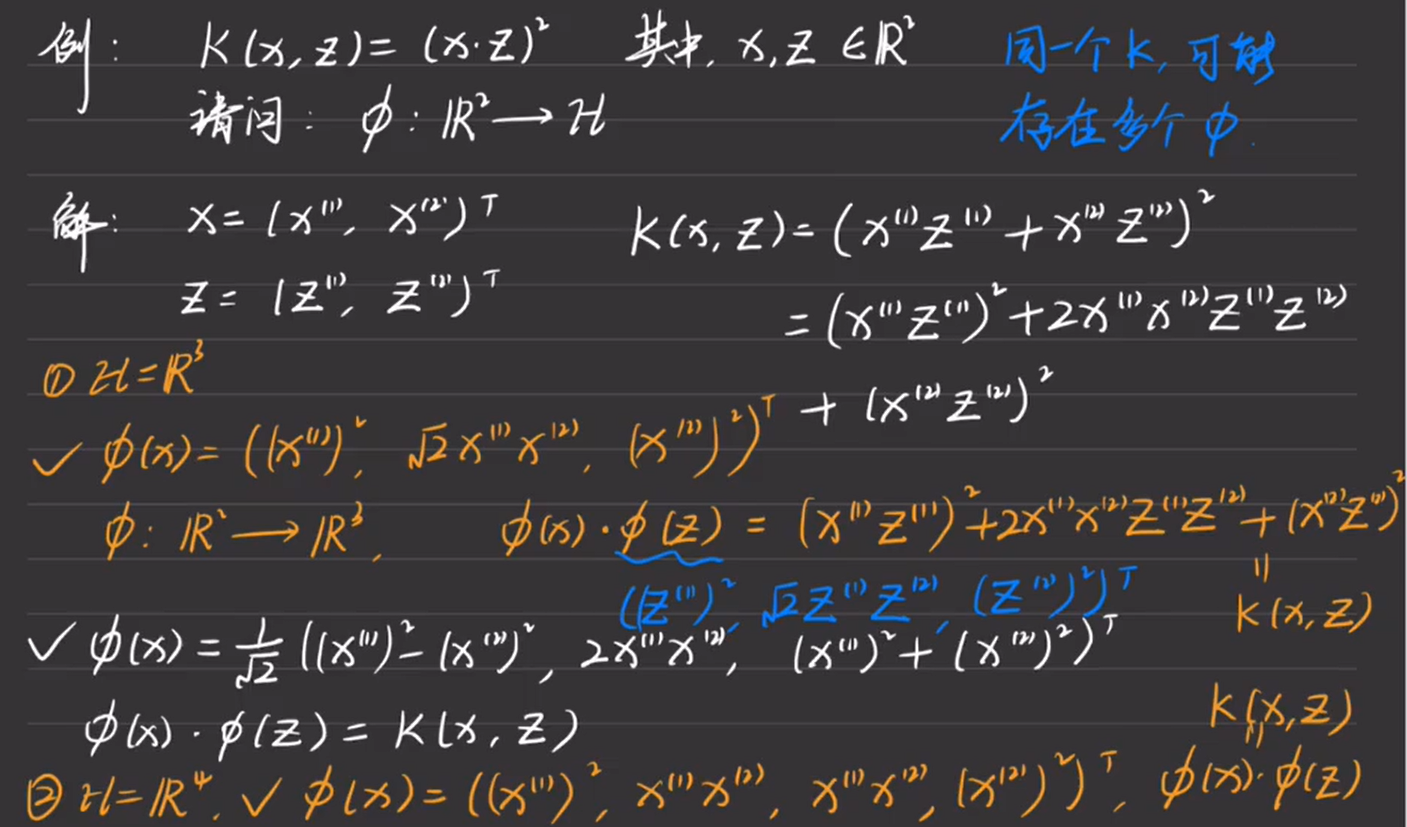 例: K(x, z) = (x·z)² 其中, x, z ∈ ℝ²
同一个 K, 可能
请问: φ: ℝ² → ℋ
存在多个 φ.
解: x = (x⁽¹⁾, x⁽²⁾)ᵀ K(x, z) = (x⁽¹⁾z⁽¹⁾ + x⁽²⁾z⁽²⁾)²
z = (z⁽¹⁾, z⁽²⁾)ᵀ
= (x⁽¹⁾z⁽¹⁾)² + 2x⁽¹⁾x⁽²⁾z⁽¹⁾z⁽²⁾
+ (x⁽²⁾z⁽²⁾)²
① ℋ = ℝ³
✓ φ(x) = ((x⁽¹⁾)², √2x⁽¹⁾x⁽²⁾, (x⁽²⁾)²)ᵀ
φ: ℝ² → ℝ³, φ(x)·φ(z) = (x⁽¹⁾z⁽¹⁾)² + 2x⁽¹⁾x⁽²⁾z⁽¹⁾z⁽²⁾ + (x⁽²⁾z⁽²⁾)²
((z⁽¹⁾)², √2z⁽¹⁾z⁽²⁾, (z⁽²⁾)²)ᵀ
=
K(x, z)
✓ φ(x) = 1/√2 ((x⁽¹⁾)² - (x⁽²⁾)², 2x⁽¹⁾x⁽²⁾, (x⁽¹⁾)² + (x⁽²⁾)²)ᵀ
φ(x)·φ(z) = K(x, z)
K(x, z)
=
② ℋ = ℝ⁴, ✓ φ(x) = ((x⁽¹⁾)², x⁽¹⁾x⁽²⁾, x⁽¹⁾x⁽²⁾, (x⁽²⁾)²)ᵀ, φ(x)·φ(z)